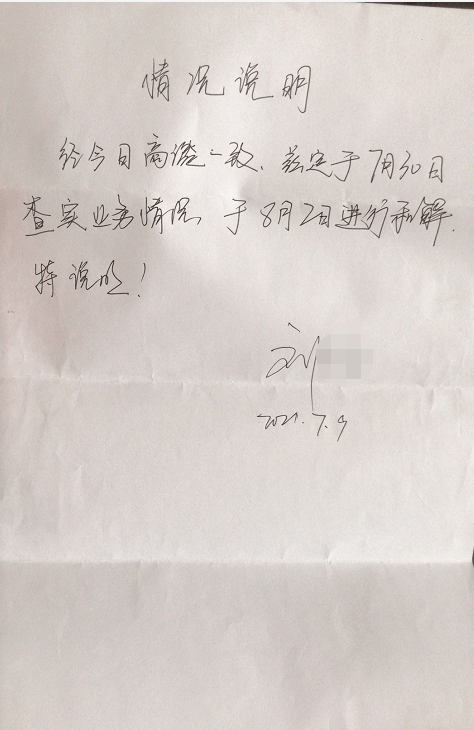 情况说明
经今日商谈一致、兹定于7月30日
查实业务情况 于8月2日进行和解.
特说明!
刘
2021.7.9